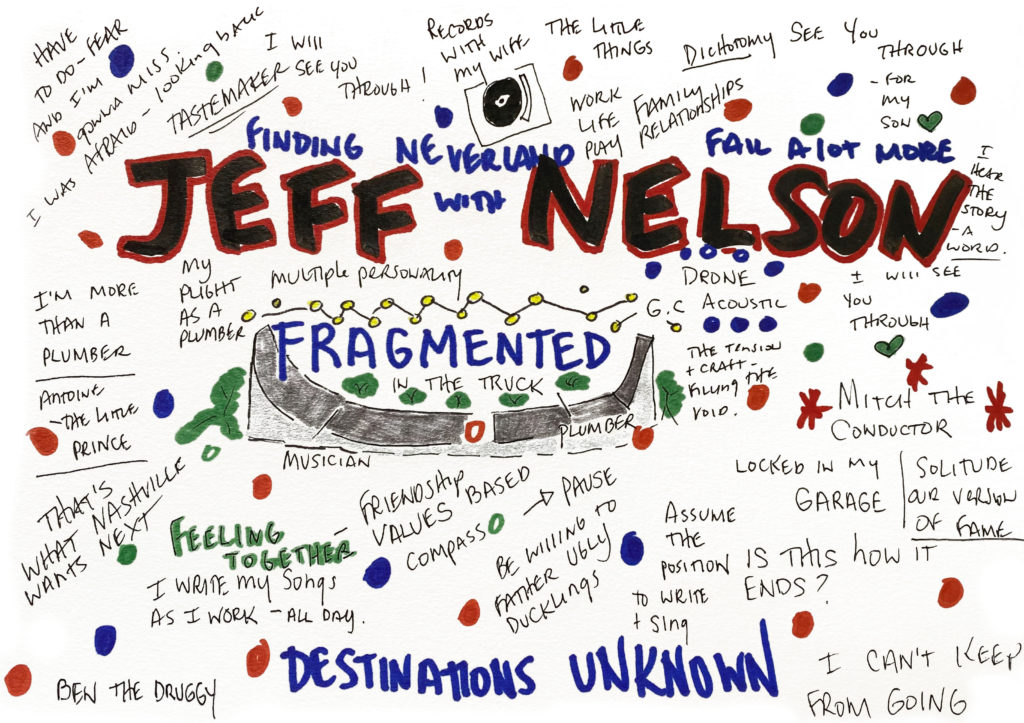 HAVE
TO DO - FEAR
AND I'M
GONNA MISS.
I WAS AFRAID - LOOKING BACK
TASTEMAKER
I WILL
SEE YOU
THROUGH!
RECORDS
WITH
MY WIFE
THE LITTLE
THINGS
WORK
LIFE
PLAY
FAMILY
RELATIONSHIPS
DICHOTOMY
SEE YOU
THROUGH
- FOR
MY
SON
FINDING NEVERLAND
WITH
FAIL A LOT MORE
JEFF NELSON
I
HEAR
THE
STORY
- A
WORD.
I'M MORE
THAN A
PLUMBER
MY
PLIGHT
AS A
PLUMBER
MULTIPLE PERSONALITY
FRAGMENTED
IN THE TRUCK
MUSICIAN
PLUMBER
DRONE
G.C ACOUSTIC
THE TENSION
+ CRAFT -
FILLING THE
VOID.
I WILL SEE
YOU
THROUGH
ANTOINE
- THE LITTLE
PRINCE
MITCH THE
CONDUCTOR
LOCKED IN MY
GARAGE
SOLITUDE
OUR VERSION
OF FAME
THAT'S
WHAT NASHVILLE
WANTS NEXT
FEELING
TOGETHER
FRIENDSHIP
VALUES BASED
COMPASS
PAUSE
I WRITE MY SONGS
AS I WORK - ALL DAY.
BE WILLING TO
FATHER UGLY
DUCKLINGS
ASSUME
THE
POSITION
TO WRITE
+ SING
IS THIS HOW IT
ENDS?
BEN THE DRUGGY
DESTINATIONS UNKNOWN
I CAN'T KEEP
FROM GOING